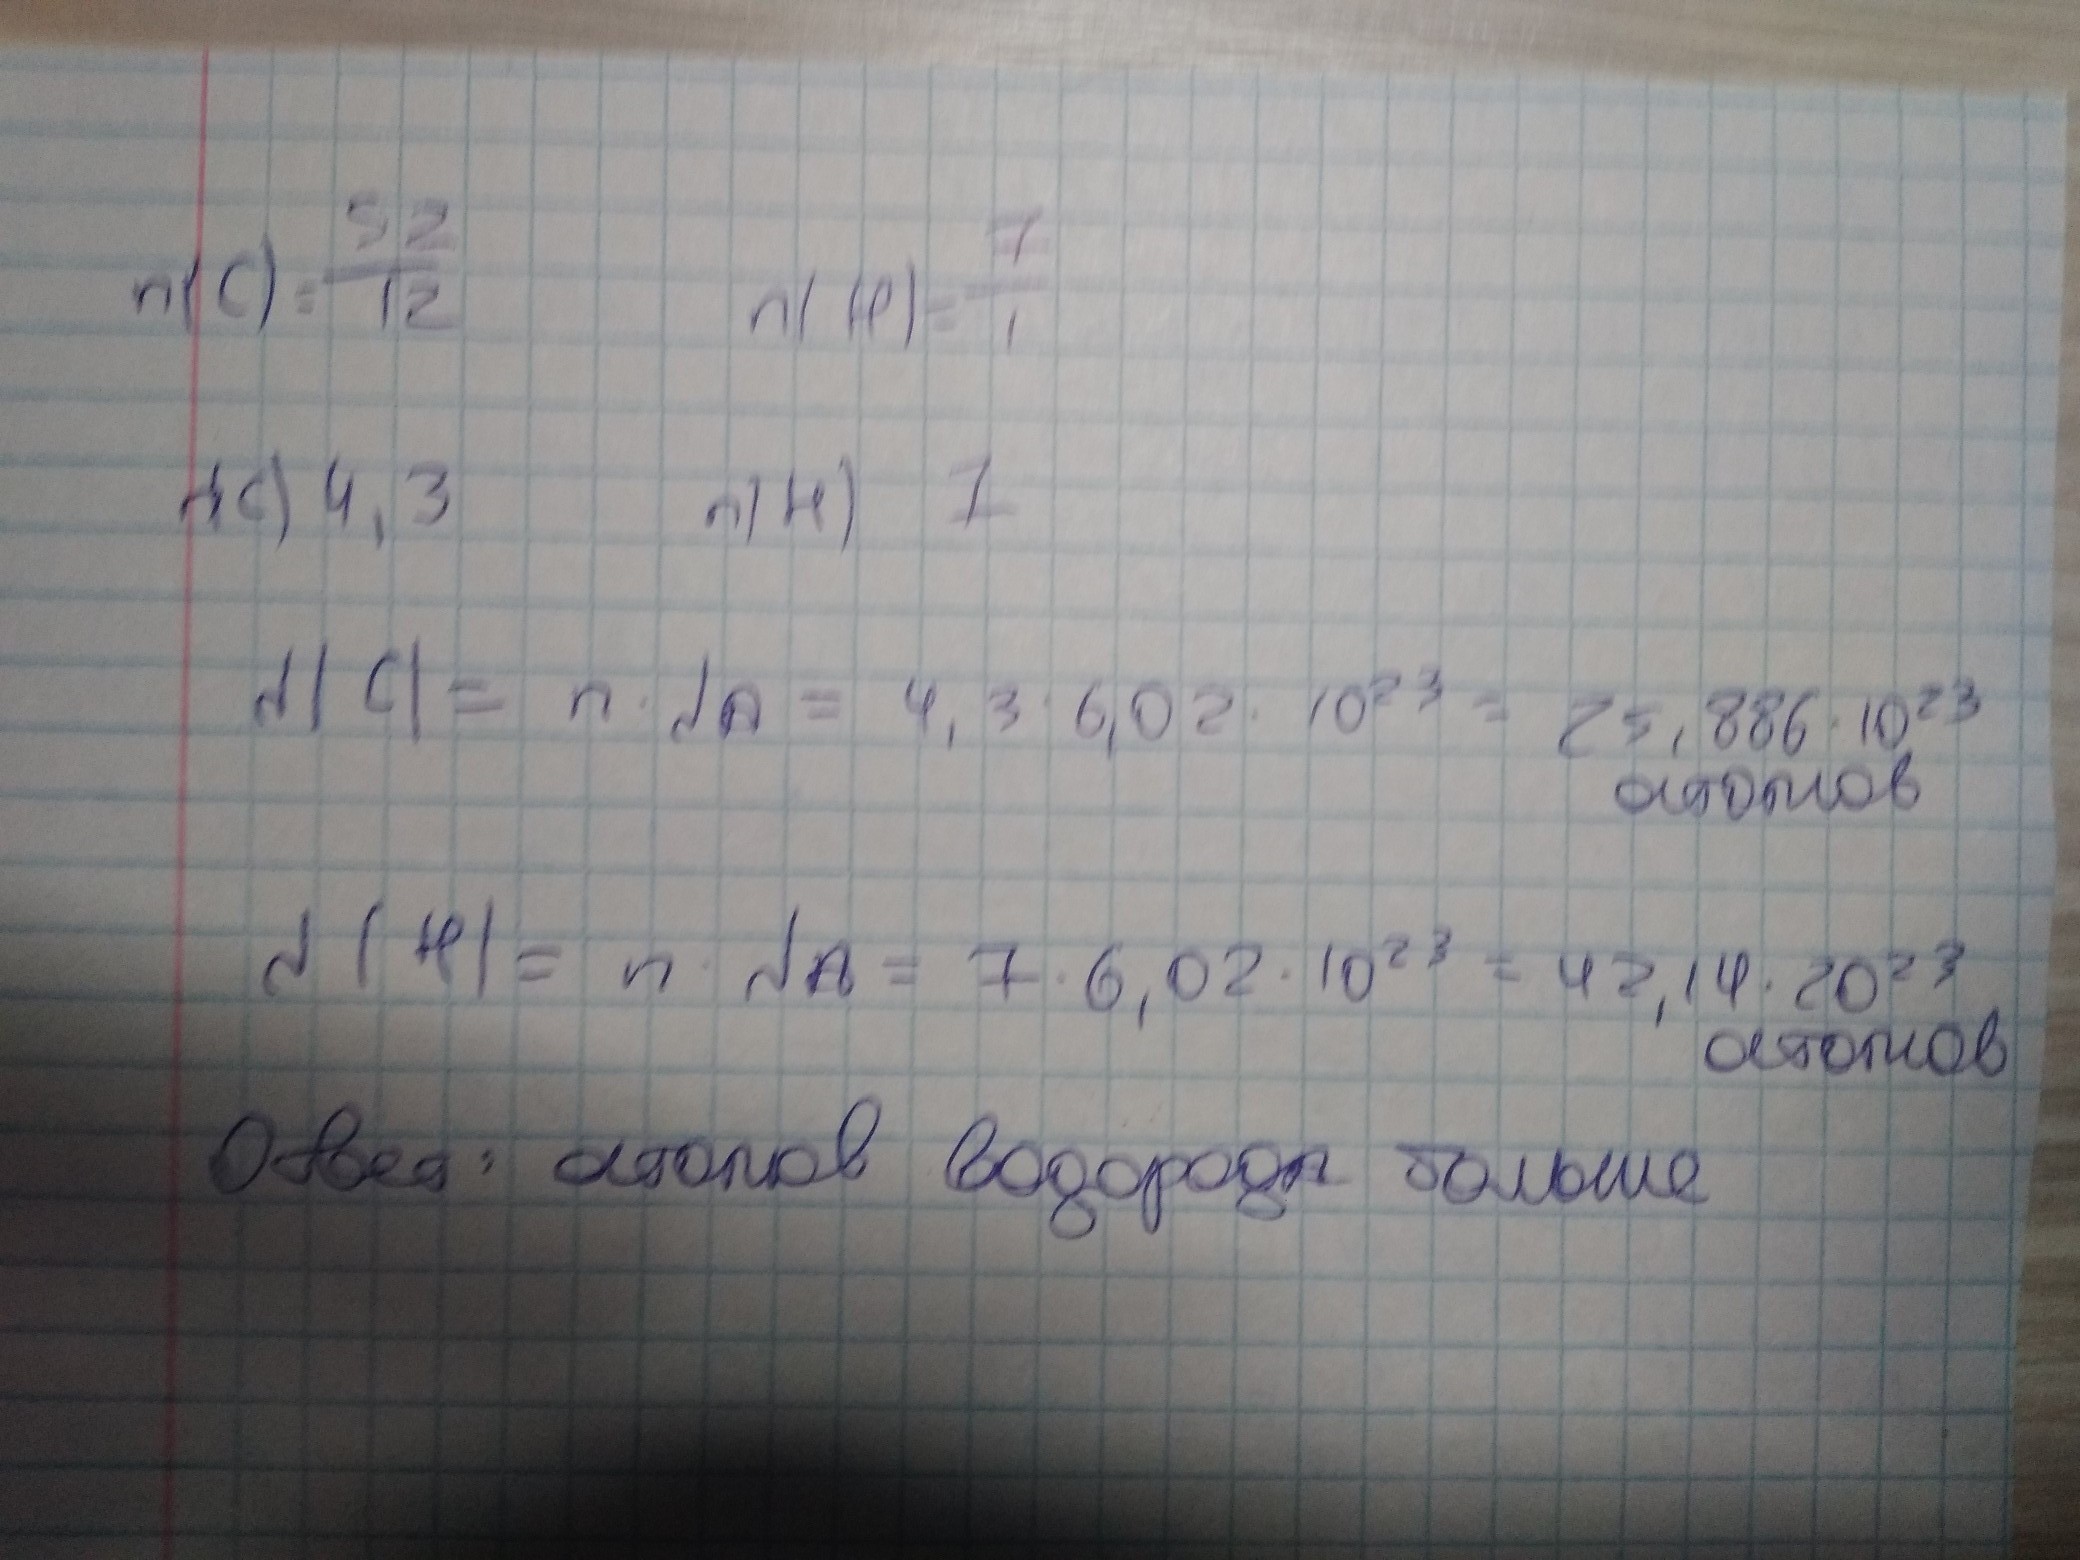 n(C) = 52/12 n(H) = 7/1
n(C) 4,3 n(H) 7
N(C) = n · NA = 4,3 · 6,02 · 10²³ = 25,886 · 10²³
атомов
N(H) = n · NA = 7 · 6,02 · 10²³ = 42,14 · 20²³
атомов
Ответ: атомов водорода больше